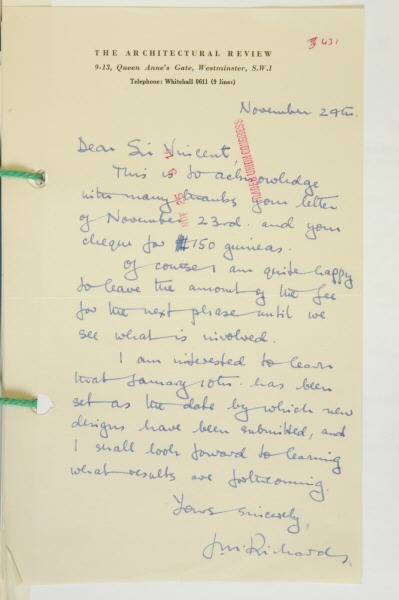 431
THE ARCHITECTURAL REVIEW
9-13, Queen Anne's Gate, Westminster, S.W.1
Telephone: Whitehall 0611 (9 lines)
November 29th.
Dear Sir Vincent,
This is to acknowledge
with many thanks your letter
of November 23rd. and your
cheque for 150 guineas.
Of course I am quite happy
to leave the amount of the fee
for the next phase until we
see what is involved.
I am interested to learn
that January 10th. has been
set as the date by which new
designs have been submitted, and
I shall look forward to learning
what results are forthcoming.
Yours sincerely,
J.M. Richards.